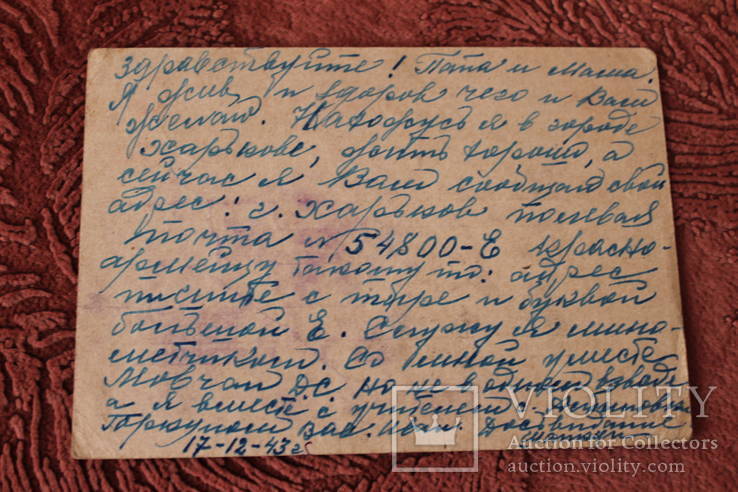 Здравствуйте! Папа и Маша.
Я жив и здоров чего и Вам
желаю. Нахожусь я в городе
Харькове, жить хорошо, а
сейчас я Вам сообщаю свой
адрес: г. Харьков полевая
почта № 54800-Е красно-
армейцу такому то: адрес
пишите с тире и буквой
большой Е. Служу я мино-
метчиком. Со мной уместе
Мовчан Д.С. но не в одном взводе
а я вместе с учителем
Горкуном Вас. Иван. Досвидание
17-12-43 г
VIOLITY
Auction for Collectors
auction.violity.com